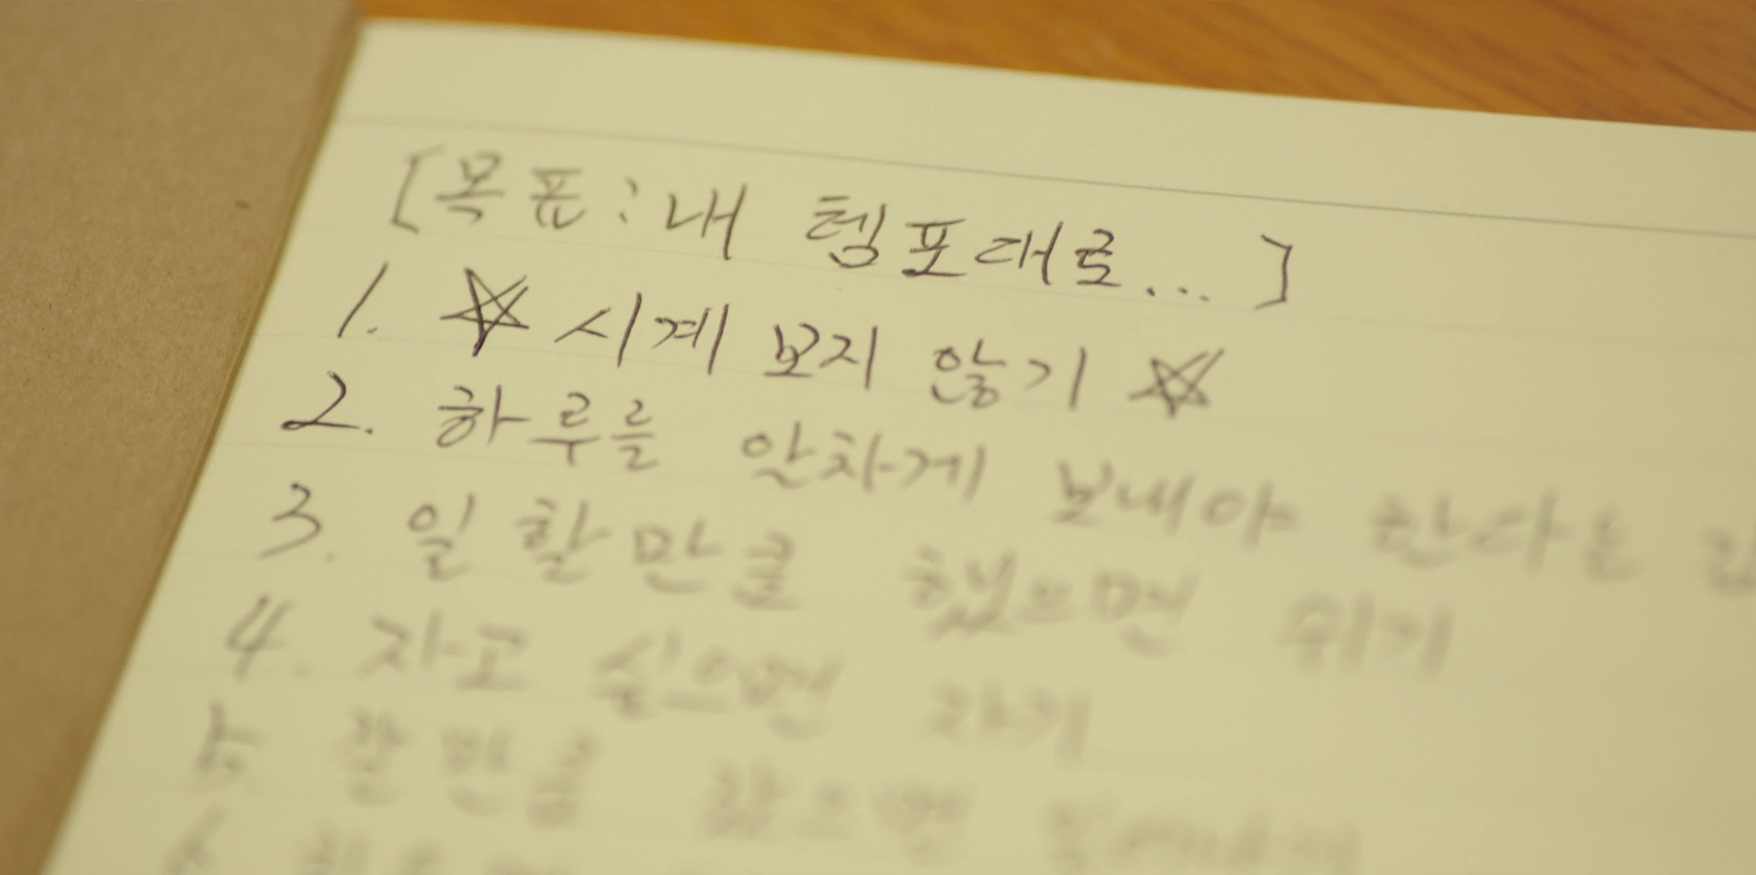 [목표:내 템포대로...]
1. ☆ 시계 보지 않기 ☆
2. 하루를 알차게 보내야 한다는
3. 일 할 만큼 했으면 쉬기
4. 자고 싶으면 자기
5 잘 만큼 잤으면